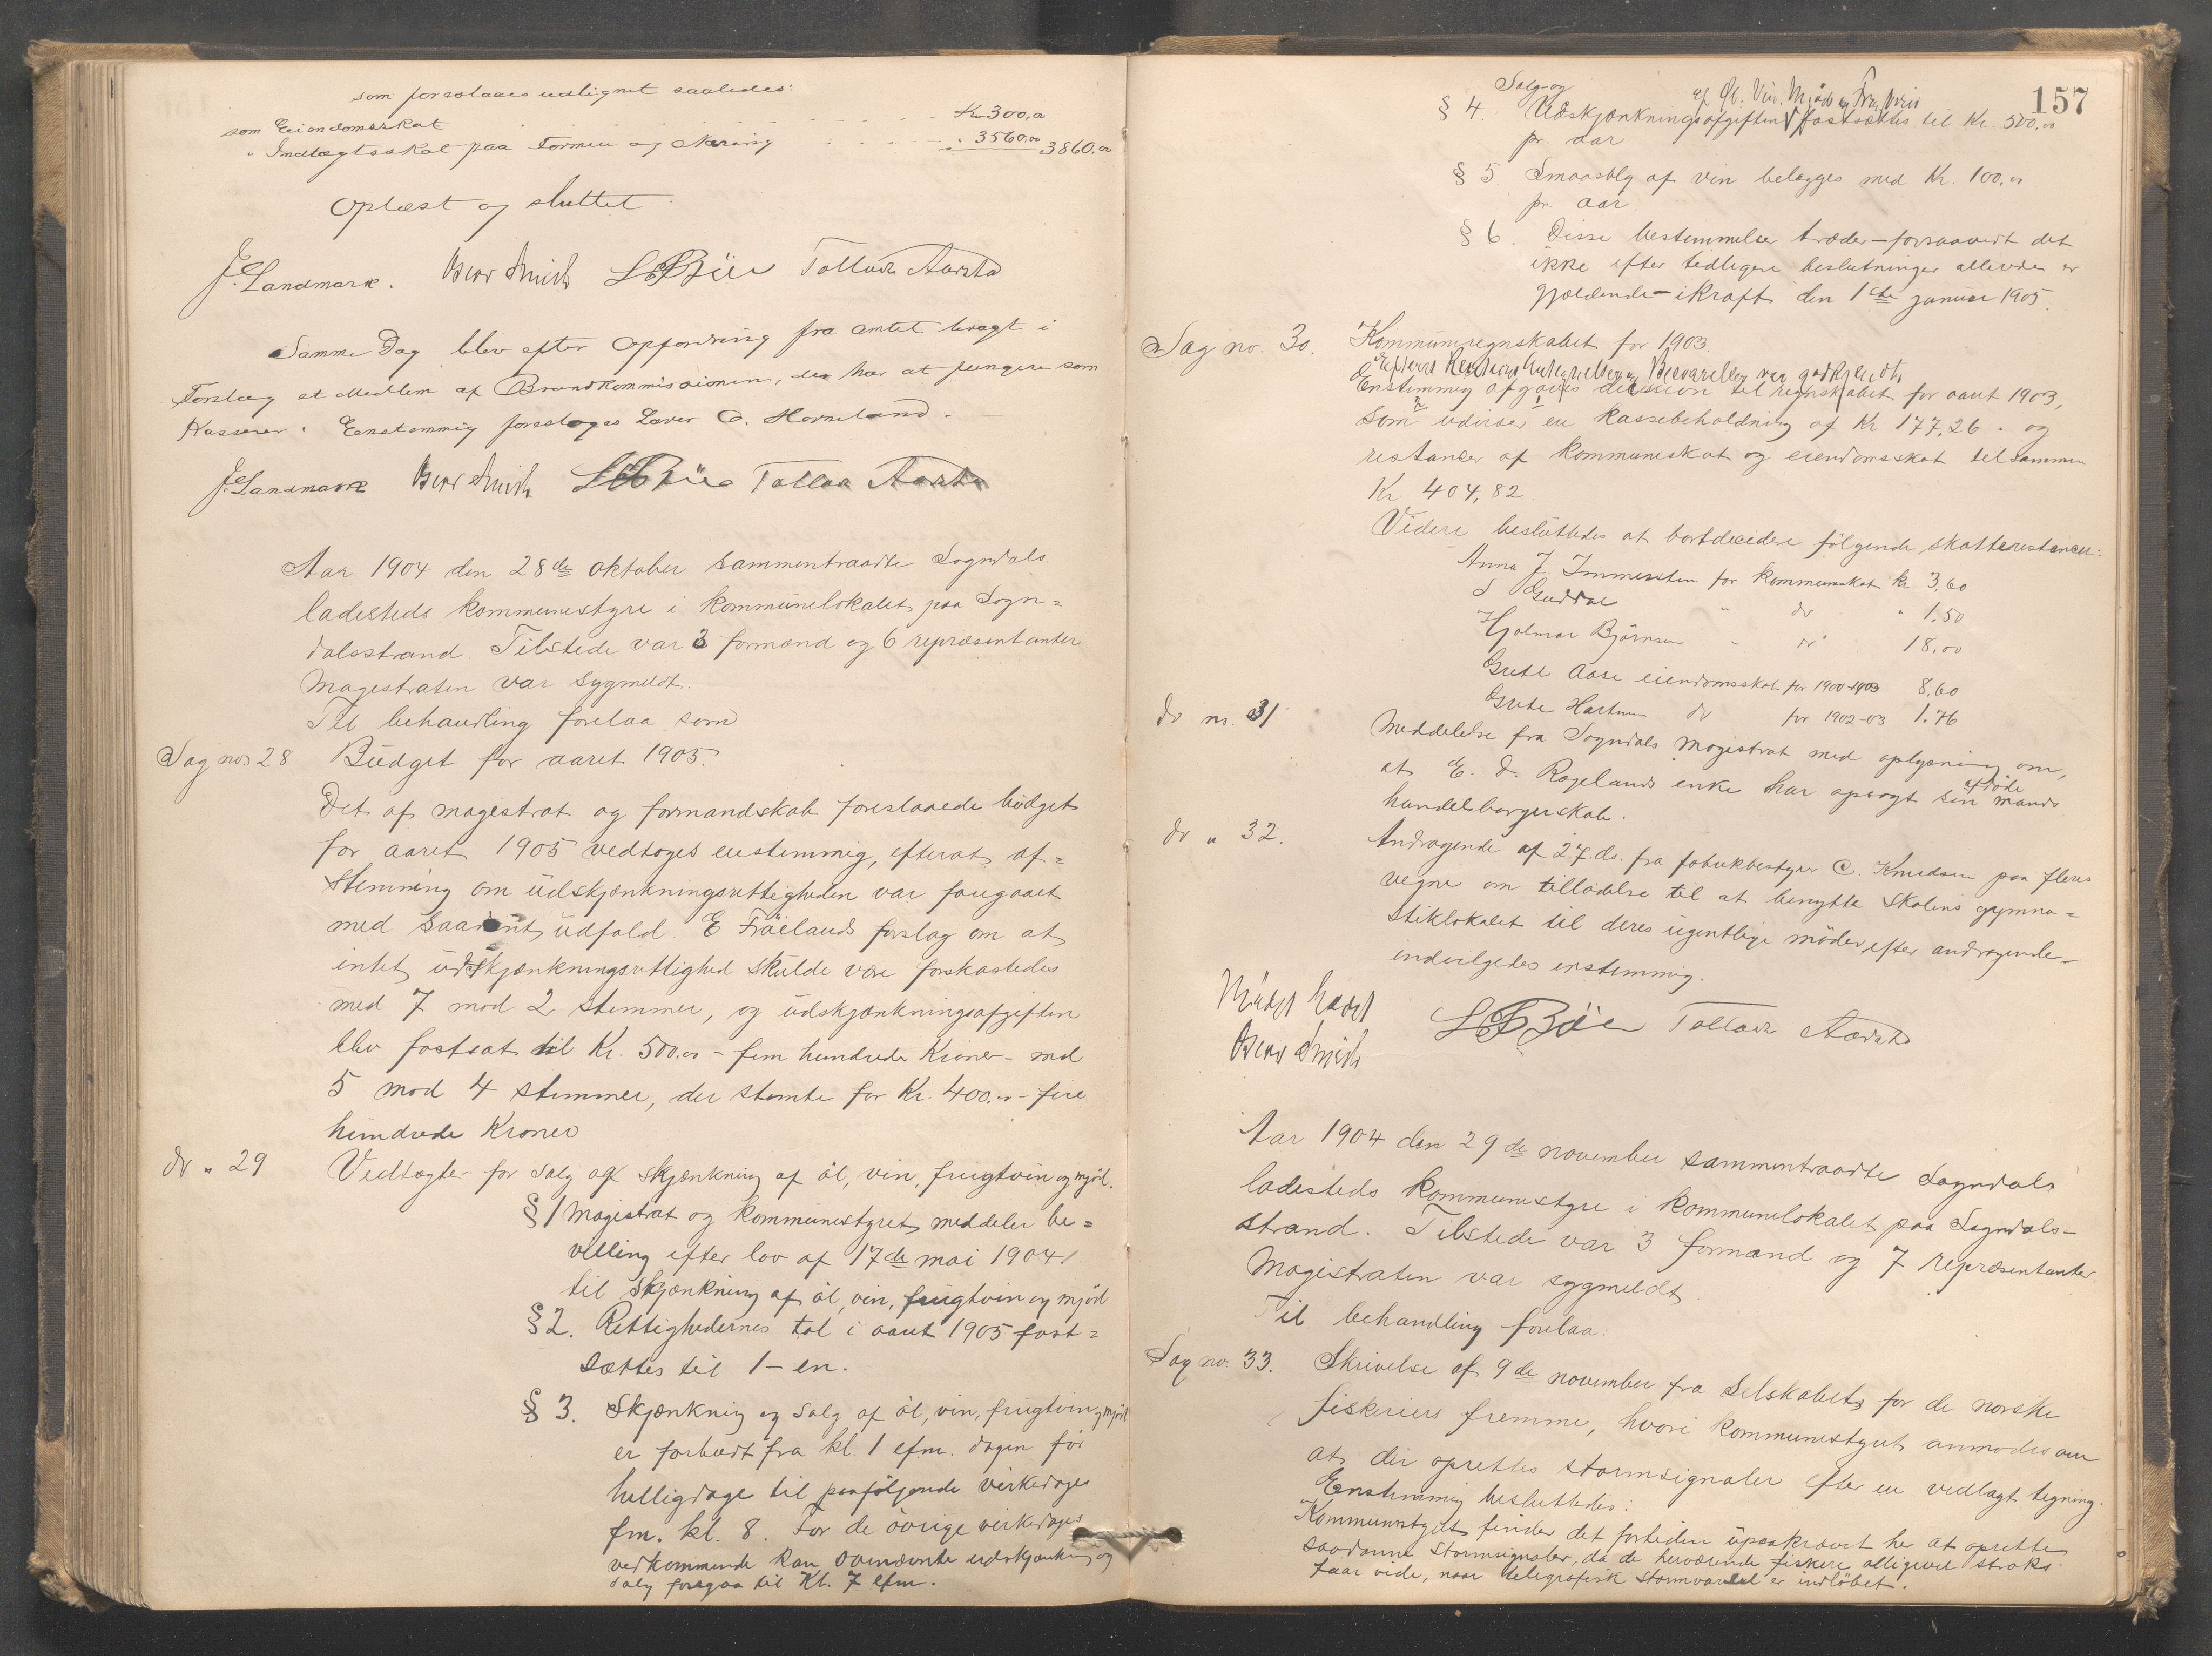 som foreslaaes udlignet saaledes:
som Eiendomsskat . . . . . Kr 300,00
" Indtægtsskat paa Formue og Næring . . . . . " 3560,00 3860,00
Oplæst og sluttet.
J. Landmark. Oscar Smith L B Böe Tollak Aarstad
Samme Dag blev efter Opfordring fra Amtet bragt i
Forslag et Medlem af Brandkommissionen, der har at fungere som
Kasserer. Eenstemmig foresloges Lærer O. Horneland.
J. Landmark Oscar Smith L B Böe Tollak Aarstad
Aar 1904 den 28de oktober sammentraadte Sogndals
ladesteds kommunestyre i kommunelokalet paa Sogn=
dalsstrand. Tilstede var 3 formænd og 6 repræsentanter
Magestraten var sygmeldt.
Til behandling forelaa som
Sag no 28 Budget for aaret 1905.
Det af magistrat og formandskab foreslaaede budget
for aaret 1905 vedtoges enstemmig, efterat af=
stemning om udskjænkningsrettigheden var foregaaet
med saadant udfald E Fröilands forslag om at
intet udskjænkningsrettighed skulde være forkastedes
med 7 mod 2 stemmer, og udskjænkningsafgiften
blev fastsat til Kr. 500.00 – fem hundrede Kroner – med
5 mod 4 stemmer, der stemte for Kr. 400.00 – fire
hundrede Kroner
do " 29 Vedtægter for salg og skjænkning af öl, vin, frugtvin og mjöd.
§ 1 Magistrat og kommunestyret meddeler be=
villing efter lov af 17de mai 1904
til skjænkning af öl, vin, frugtvin og mjöd
§ 2. Rettighedernes tal i aaret 1905 fast=
sættes til 1 – en.
§ 3. Skjænkning og salg af öl, vin, frugtvin og mjöd
er forbudt fra kl. 1 efm. dagen för
helligdage til paafölgende virkedages
fm. kl. 8. For de övrige virkedages
vedkommende kan ovennævnte udskjænkning og
salg foregaa til Kl. 7 efm.
157
Salg- og af Öl, Vin, Mjöd og Frugtvin
§ 4. Udskjænkningsafgiften fastsættes til Kr. 500,00
pr. aar
§ 5. Smaasalg af vin belægges med Kr. 100,00
pr. aar
§ 6. Disse bestemmelser træder – forsaavidt det
ikke efter tidligere beslutninger allerede er
gjældende – ikraft den 1ste januar 1905.
Sag no. 30. Kommuneregnskabet for 1903.
Efterat Revisions Antegnelser og Besvarelser var godkjendt,
Enstemmig afgaves decission til regnskabet for aaret 1903,
som udviser en kassebeholdning af Kr 177,26. og
restancer af kommuneskat og eiendomsskat tilsammen
Kr 404,82.
Videre besluttedes at bortdecidere fölgende skatterestancer:
Anna J. Immerstein for kommuneskat kr 3,60
S Guddal " do " 1.50
Hjalmar Björnsen " do 18.00
Grete Aase eiendomsskat for 1900–1903 8,60
Grete Hartmann do for 1902–03 1.76
do no. 31 Meddelelse fra Sogndals magistrat med oplysning om,
at E. d. Rogelands enke har opsagt sin afdöde mands
handelsborgerskab.
do " 32. Andragende af 27. ds. fra fabrikbestyrer C. Knudsen paa fleres
vegne om tilladelse til at benytte skolens gymna=
stiklokalet til deres ugentlige möder, efter andragende –
indvilgedes enstemmig.
L B Böe Tollak Aarstad
Oscar Smith
Aar 1904 den 29de november sammentraadte Sogndals
ladesteds kommunestyre i kommunelokalet paa Sogndals-
strand. Tilstede var 3 formænd og 7 repræsentanter
Magistraten var sygmeldt.
Til behandling forelaa:
Sag no. 33. Skrivelse af 9de november fra Selskabet for de norske
fiskeriers fremme, hvori kommunestyret anmodes om
at der oprettes stormsignaler efter en vedlagt tegning.
Enstemmig besluttedes:
Kommunestyret finder det fortiden upaakrævet her at oprette
saadanne stormsignaler, da de herværende fiskere alligevel straks
faar vide, naar telegrafisk stormvarsel er indlöbet.